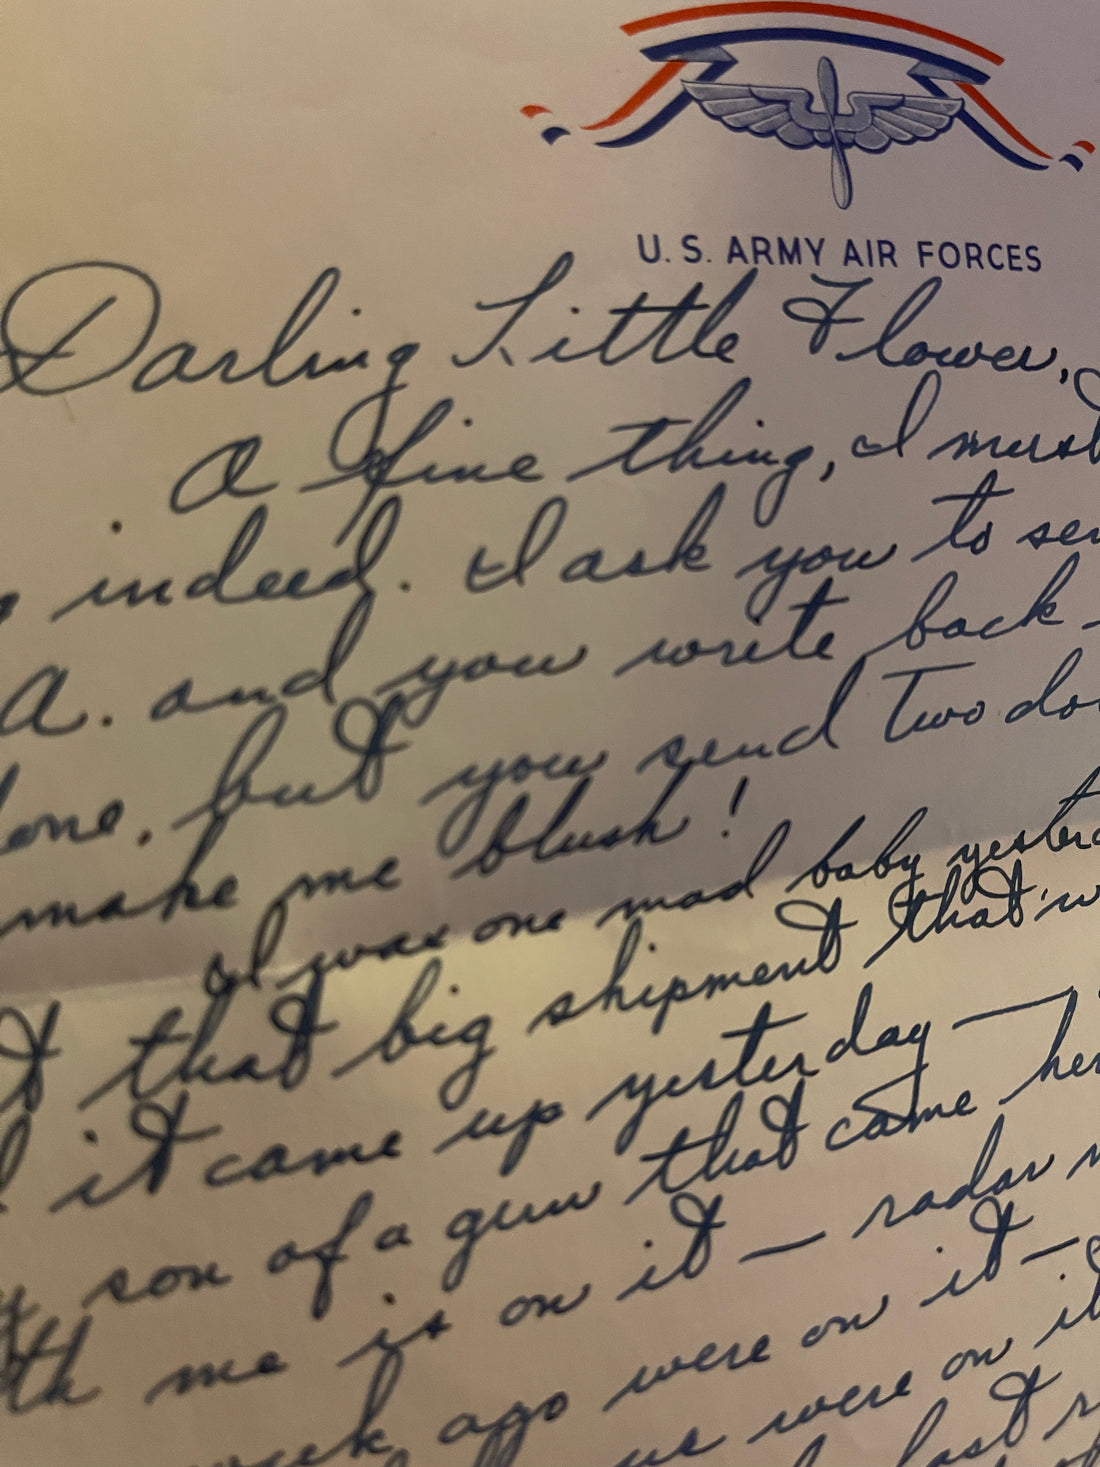 U. S. ARMY AIR FORCES
Darling Little Flower,
A fine thing, I must
indeed. I ask you to
A. and you write back -
but you send two
make me blush!
I was one mad baby
that big shipment that
it came up yesterday —
son of a gun that came
me is on it — radar
ago were on it —
were on
last